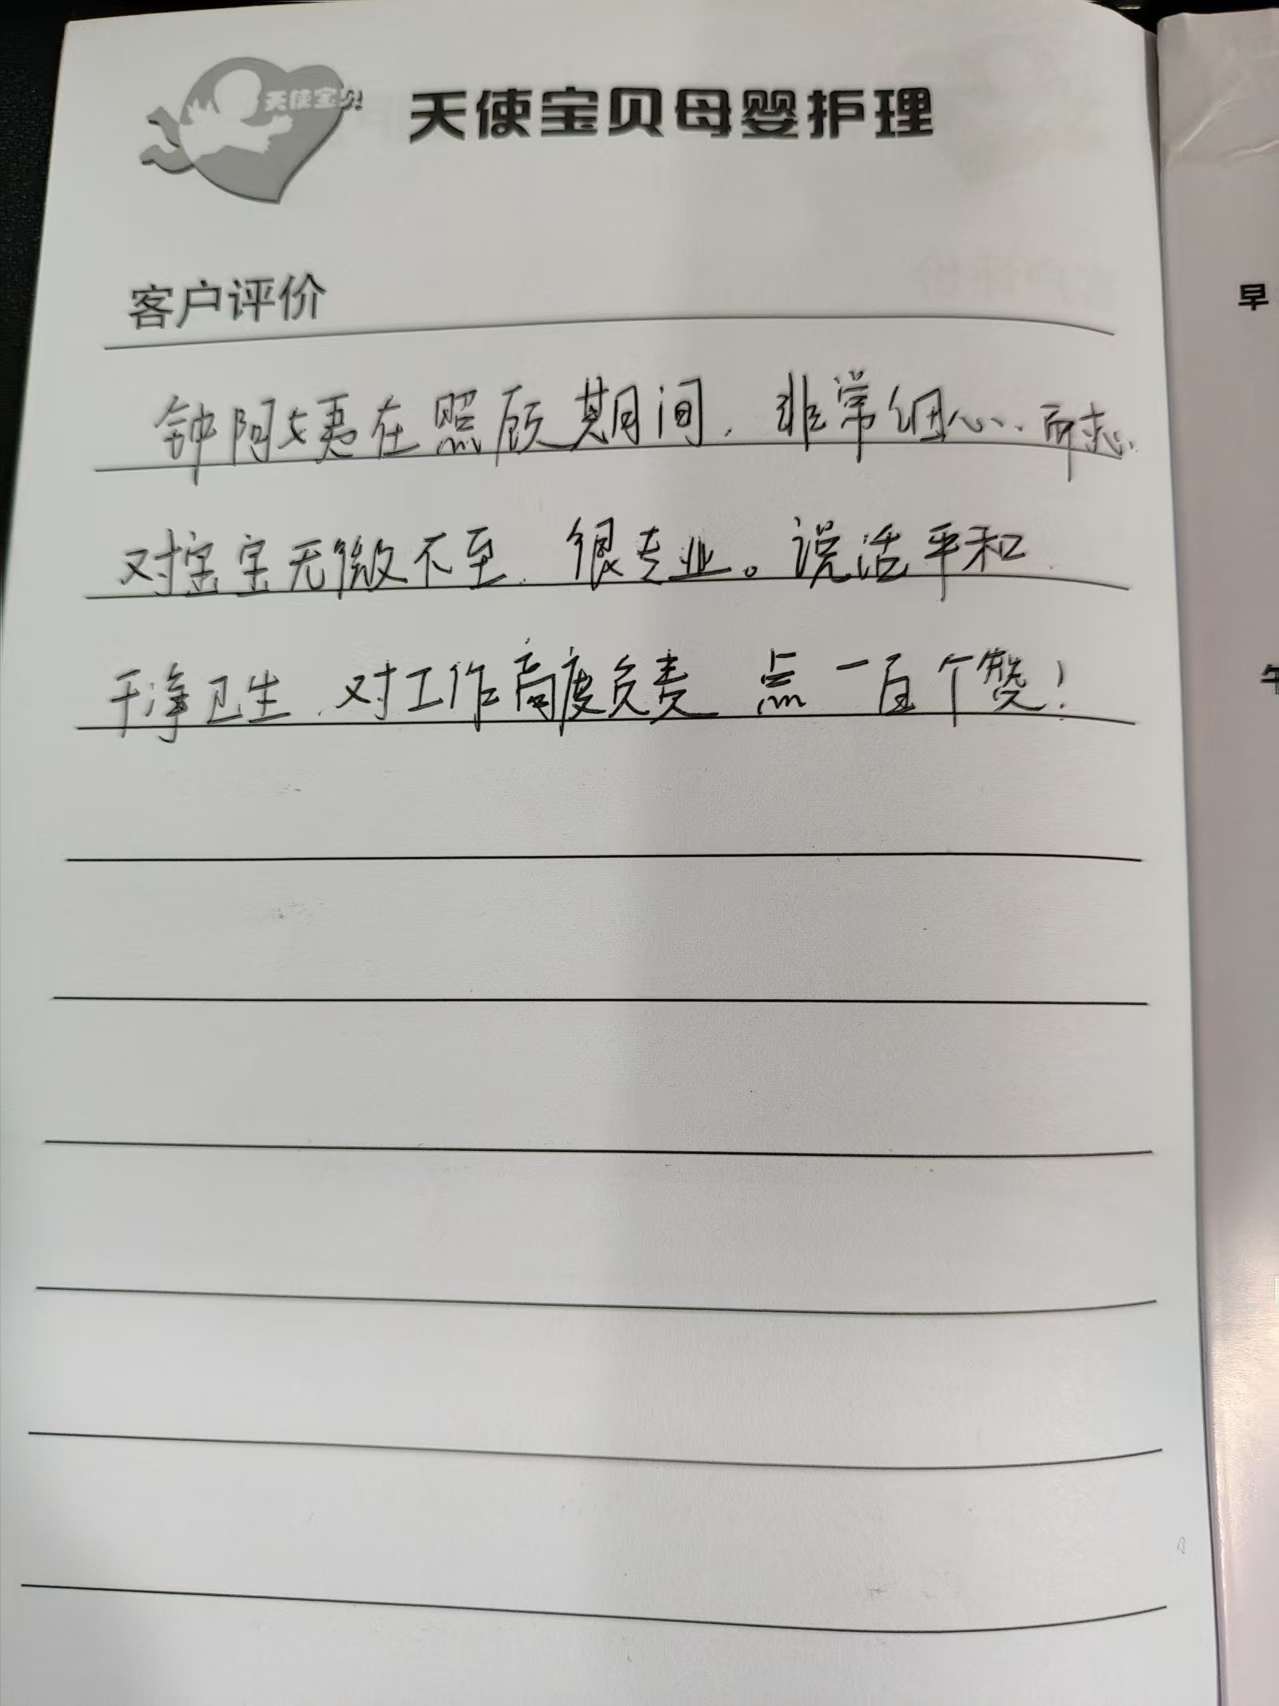 天使宝贝
天使宝贝母婴护理
客户评价
早
钟阿姨在照顾期间，非常细心、耐心
对宝宝无微不至、很专业。说话平和
午
干净卫生、对工作高度负责 点一百个赞！